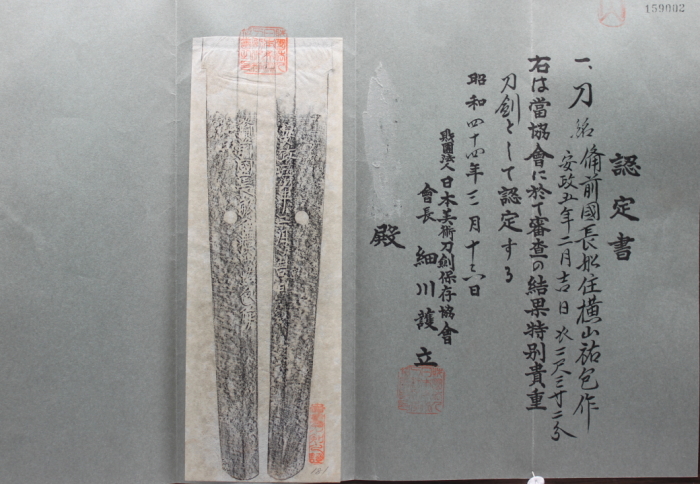 159002
認定書
一、刀 銘 備前國長船住横山祐包作
安政五年二月吉日 長二尺三寸二分
右は當協會に於て審査の結果特別貴重
刀劍として認定する
昭和四十四年三月十六日
財團法人日本美術刀劍保存協會
會長 細川護立
殿